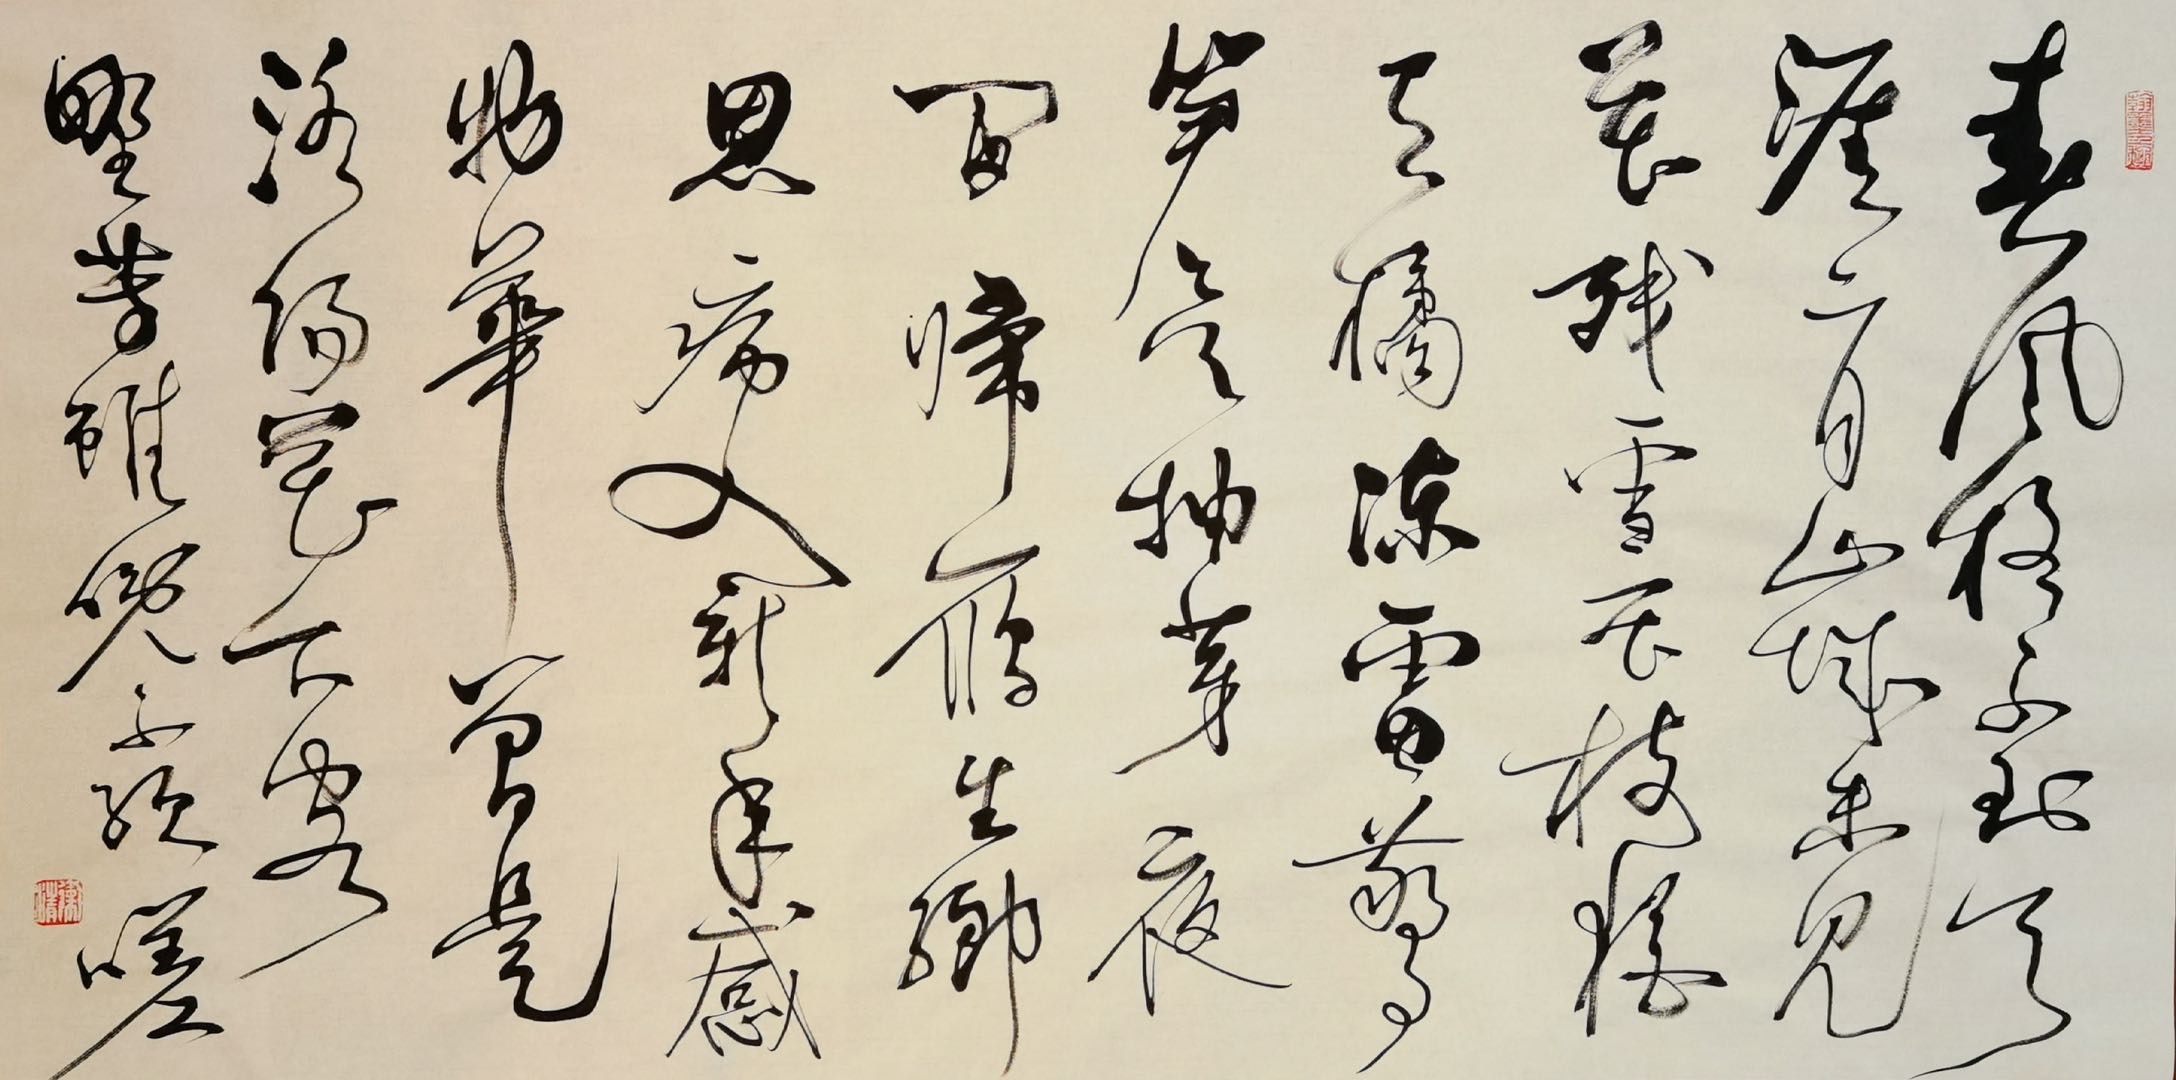 春風疑不到天
涯二月山城未見
花残雪压枝猶
有橘凍雷驚
笋欲抽芽夜
聞歸雁生鄉
思病入新年感
物華曾是
洛陽花下客
野芳雖晚不須嗟